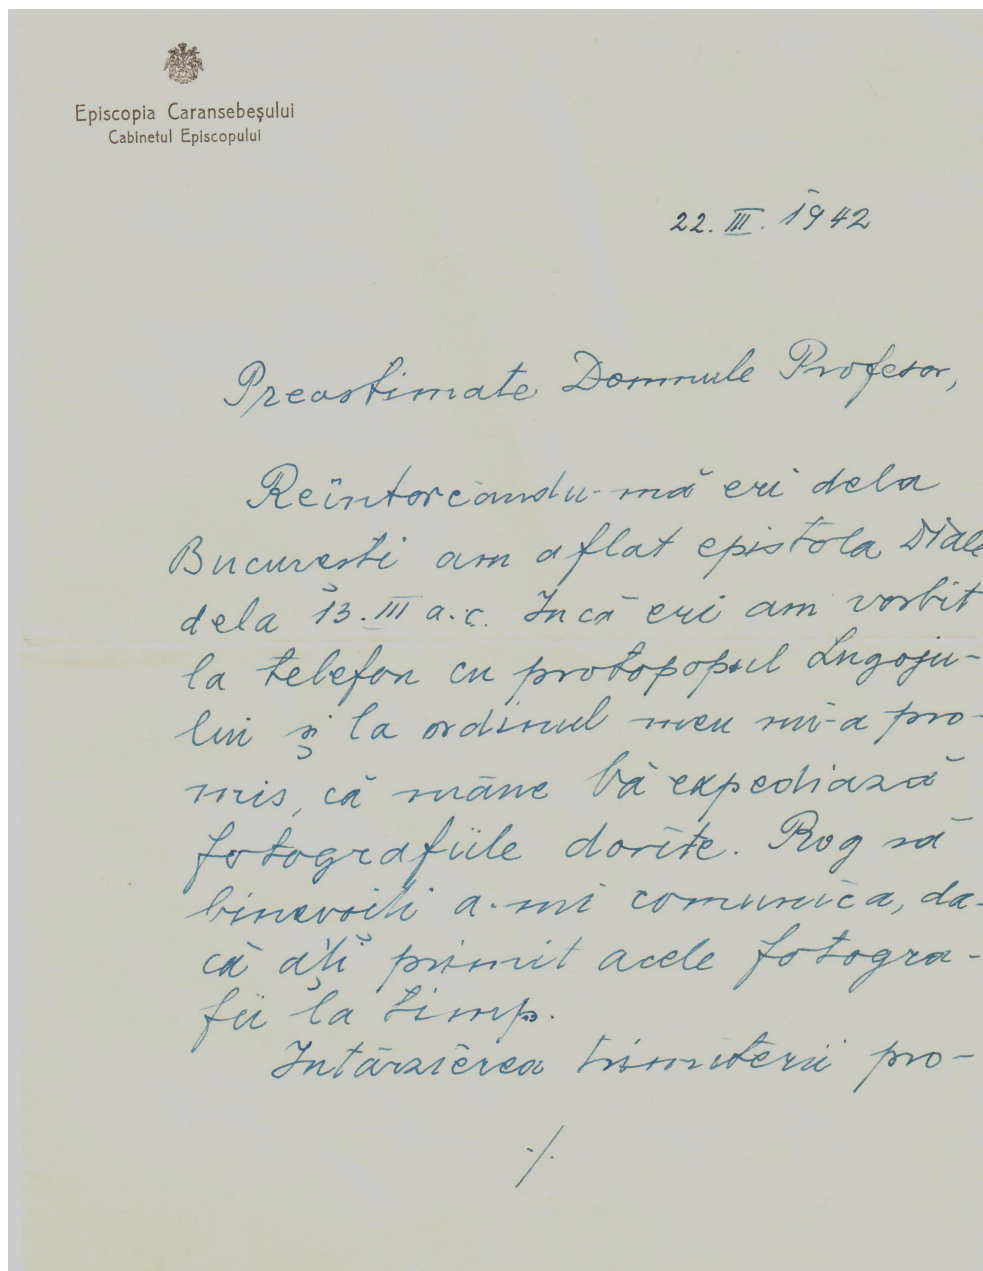 Episcopia Caransebeşului
Cabinetul Episcopului
22. III. 1942
Preastimate Domnule Profesor,
Reîntorcându-mă eri dela
Bucureşti am aflat epistola Diale
dela 13. III a. c. Incă eri am vorbit
la telefon cu protopopul Lugoju-
lui şi la ordinul meu mi-a pro-
mis, că mâne Vă expediază
fotografiile dorite. Rog să
binevoiţi a-mi comunica, da-
că aţi primit acele fotogra-
fii la timp.
Intârzierea trimiterii pro-
./.